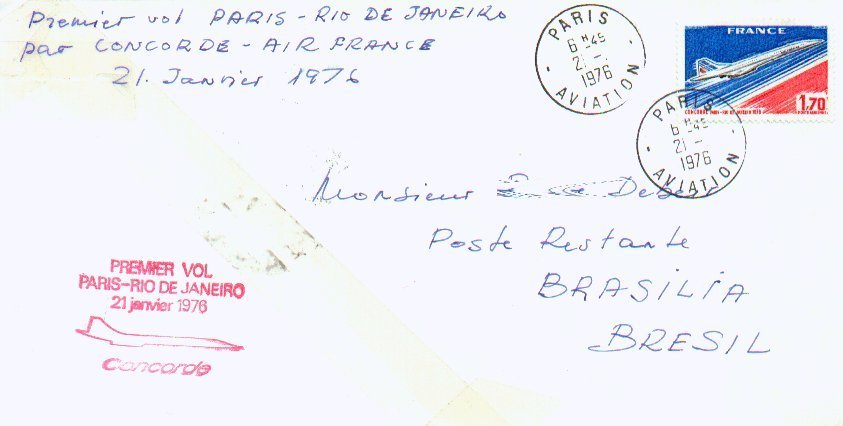 Premier vol PARIS - RIO DE JANEIRO
par CONCORDE - AIR FRANCE
21. Janvier 1976
PARIS
6 H45
21 - 1
1976
AVIATION
FRANCE
1,70
PARIS
6 H45
21 - 1
1976
AVIATION
Monsieur
Poste Restante
BRASILIA
BRESIL
PREMIER VOL
PARIS-RIO DE JANEIRO
21 janvier 1976
Concorde